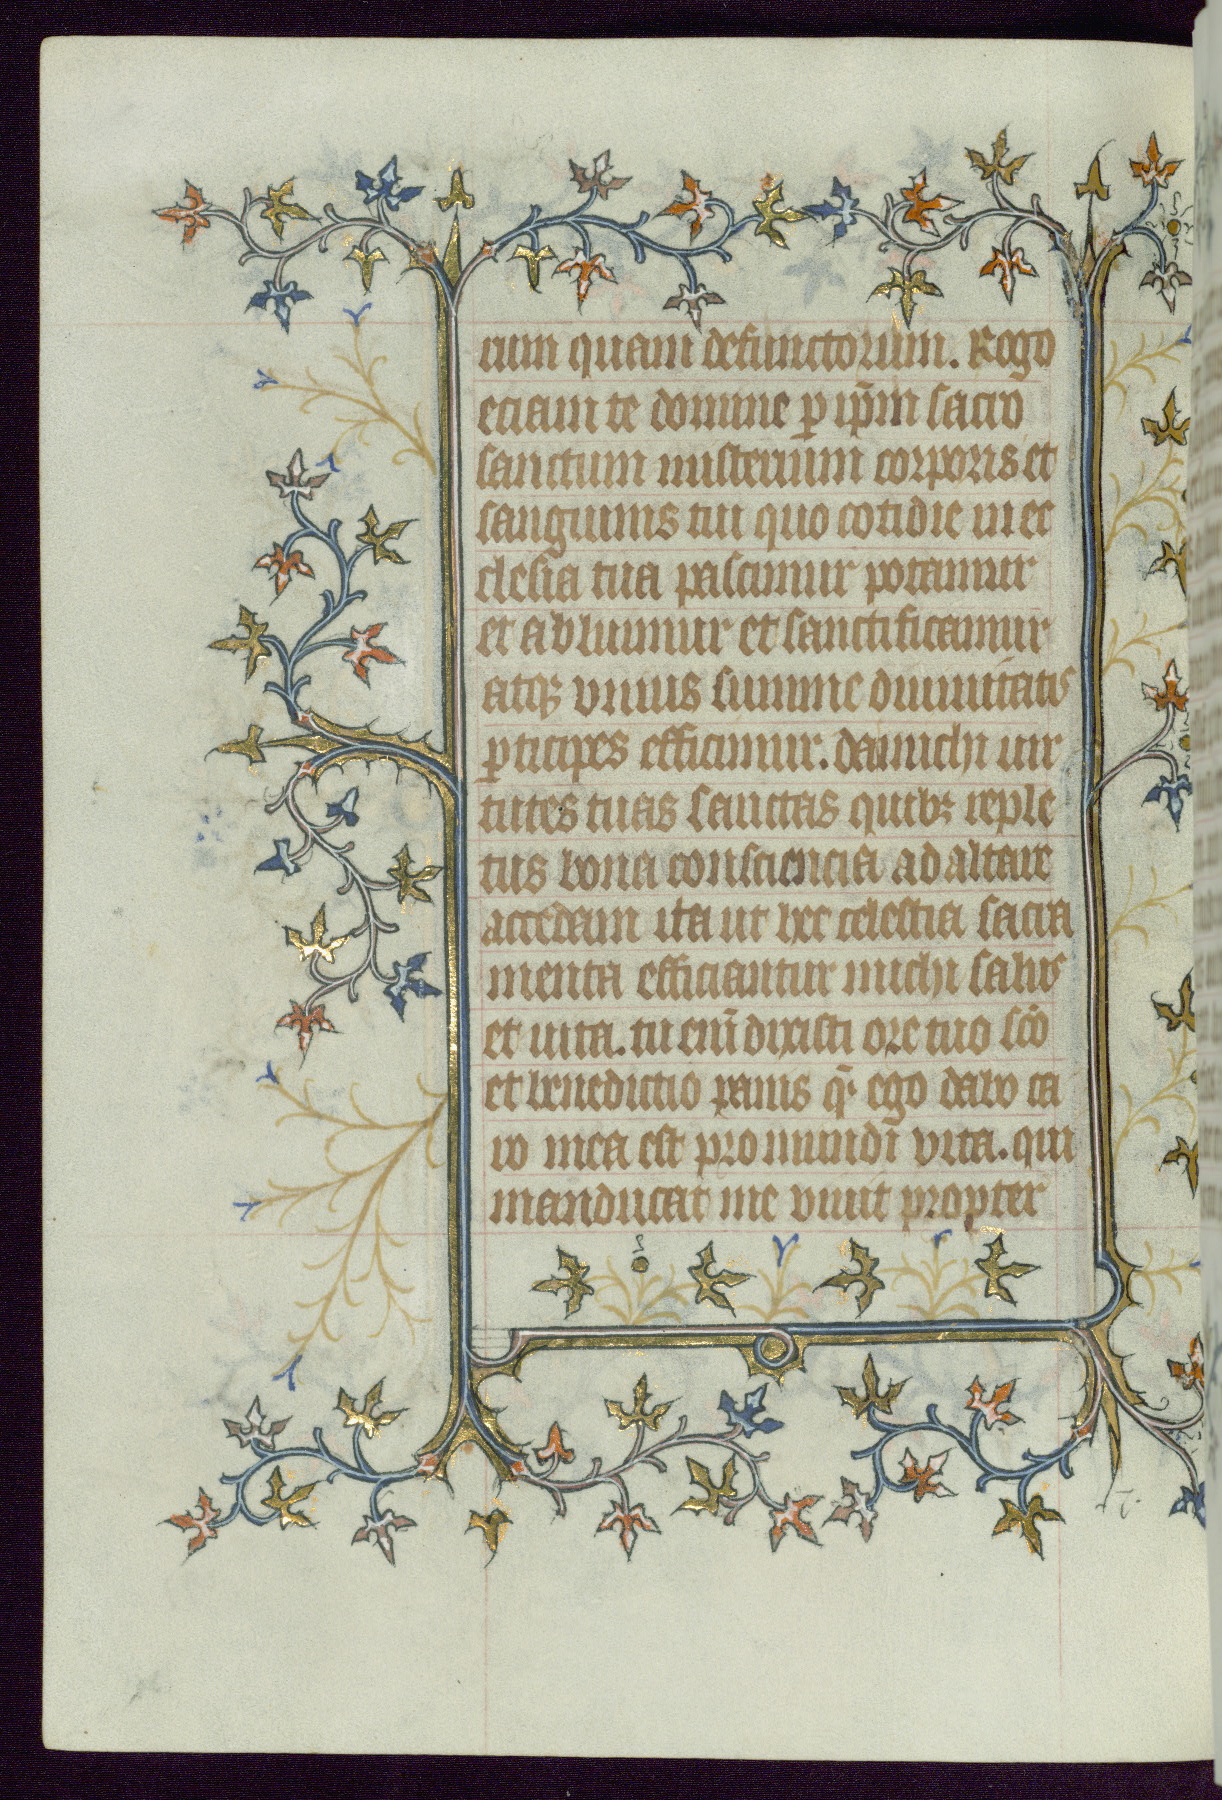 cum quam defunctorum. Rogo
eciam te domine ꝑ ip̄m sacro
sanctum misterium corporis et
sanguinis tui quo cotidie in ec
clesia tua pascimur potamur
et abluimur et sanctificamur
atqꝫ vnius summe diuinitatis
ꝑticipes efficimur. da michi uir
tutes tuas sanctas quibꝫ reple
tus bona consciencia ad altare
accedam ita ut hec celestia sacra
menta efficiantur michi salus
et uita. tu eni̅ dixisti ore tuo sc̅o
et benedictio panis q̄ ego dabo ca
ro mea est pro mundi̅ vita. qui
manducat me viuit propter